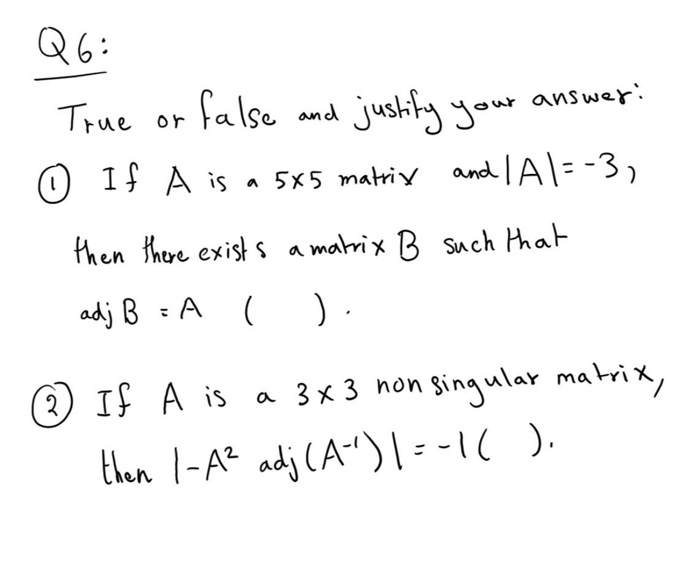 Q6:
True or false and justify your answer:
① If A is a 5x5 matrix and |A|=-3,
then there exists a matrix B such that
adj B = A ( ).
② If A is a 3x3 nonsingular matrix,
then |-A² adj(A⁻¹)|=-1( ).